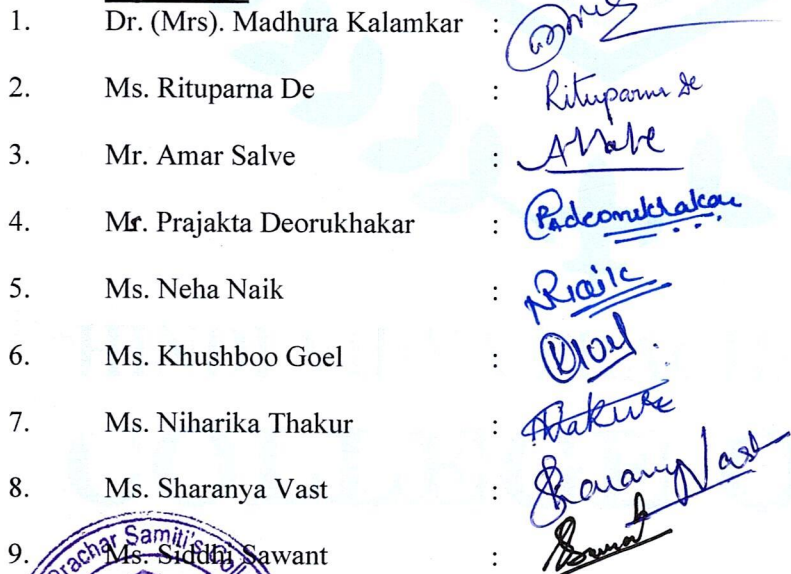 1. Dr. (Mrs). Madhura Kalamkar :
2. Ms. Rituparna De : Rituparna De
3. Mr. Amar Salve :
4. Mr. Prajakta Deorukhakar : PAdeorukhakar
5. Ms. Neha Naik : NRNaik
6. Ms. Khushboo Goel : KGoel
7. Ms. Niharika Thakur : Thakur
8. Ms. Sharanya Vast : Sharanya Vast
Prachar Samiti's
9. Ms. Siddhi Sawant :